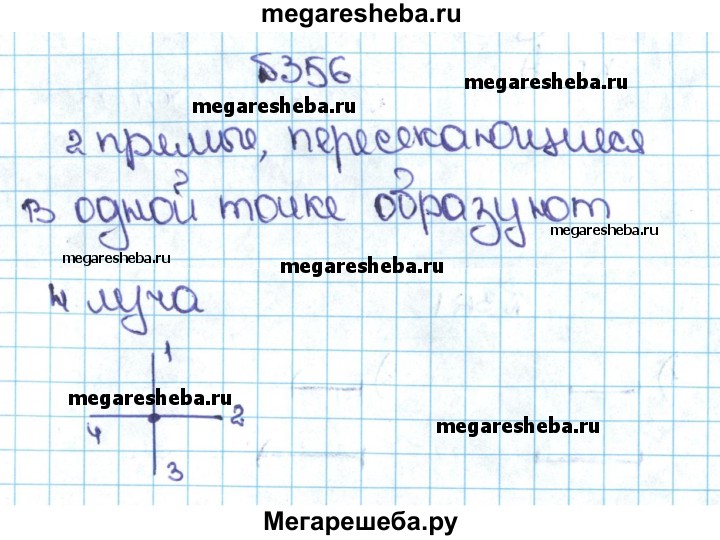 megaresheba.ru
№356
megaresheba.ru
megaresheba.ru
2 прямые, пересекающиеся
в одной точке образуют
megaresheba.ru
megaresheba.ru
megaresheba.ru
4 луча
1
megaresheba.ru
2
4
megaresheba.ru
3
Мегарешеба.ру